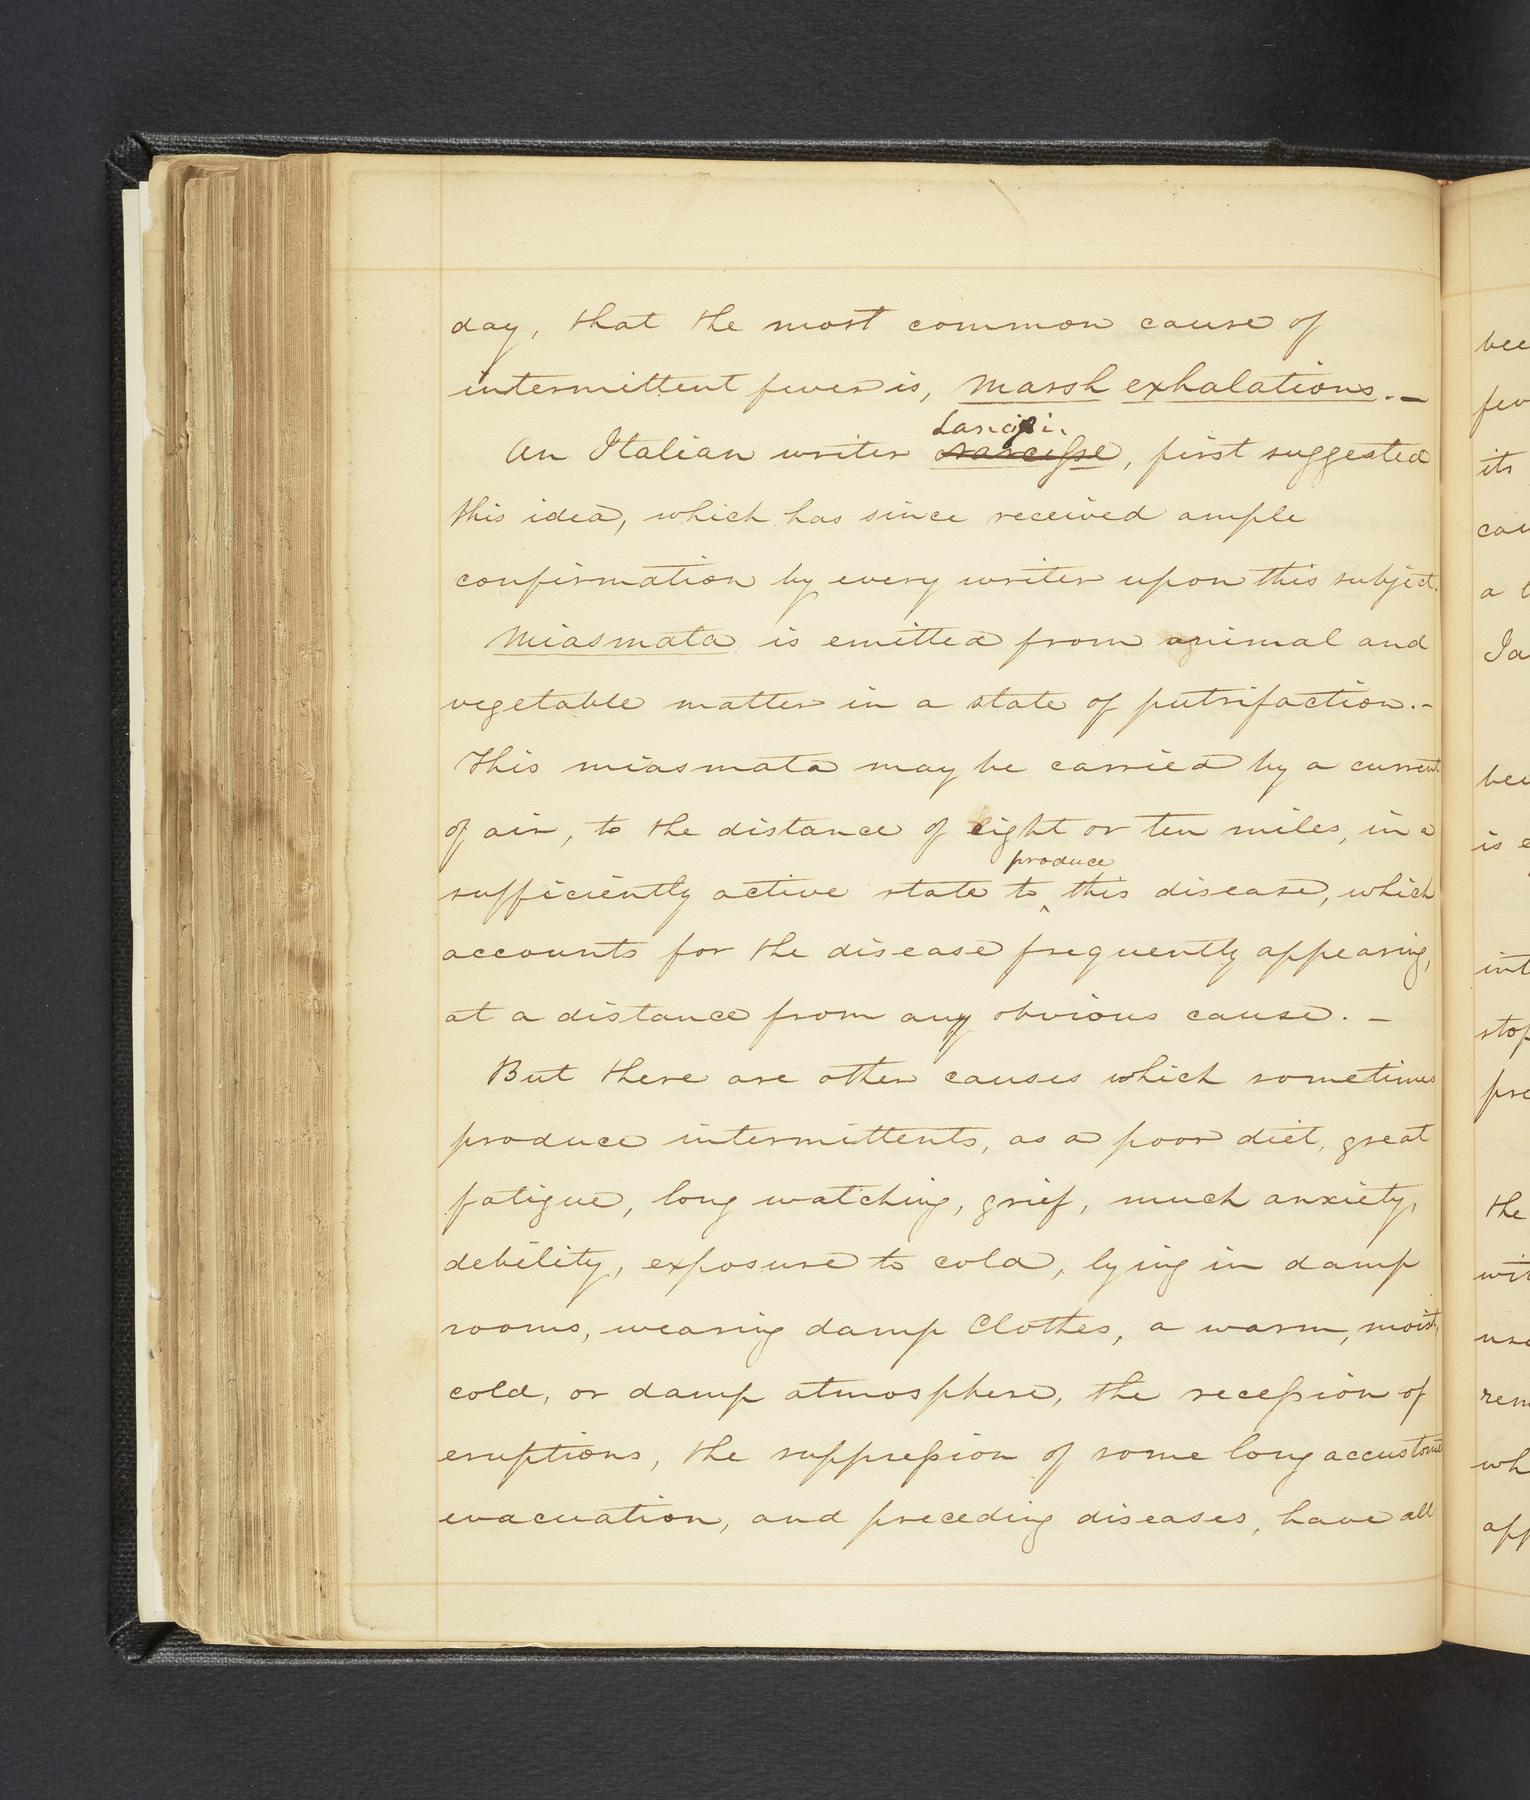 day, that the most common cause of
intermittent fever is, Marsh exhalations. —
Lancisi.
An Italian writer narcisse, first suggested
this idea, which has since received ample
confirmation by every writer upon this subject.
Miasmata is emitted from animal and
vegetable matter in a state of putrifaction. -
This miasmata may be carried by a current
of air, to the distance of eight or ten miles, in a
produce
sufficiently active state to ‸ this disease, which
accounts for the disease frequently appearing,
at a distance from any obvious cause. —
But there are other causes which sometimes
produce intermittents, as a poor diet, great
fatigue, long watching, grief, much anxiety,
debility, exposure to cold, lying in damp
rooms, wearing damp Clothes, a warm, moist,
cold, or damp atmosphere, the recession of
eruptions, the suppression of some long accustome
evacuation, and preceding diseases, have all
bee
fev
its
cau
a
Ja
bee
is
int
stop
pre
the
wit
use
rem
wh
app